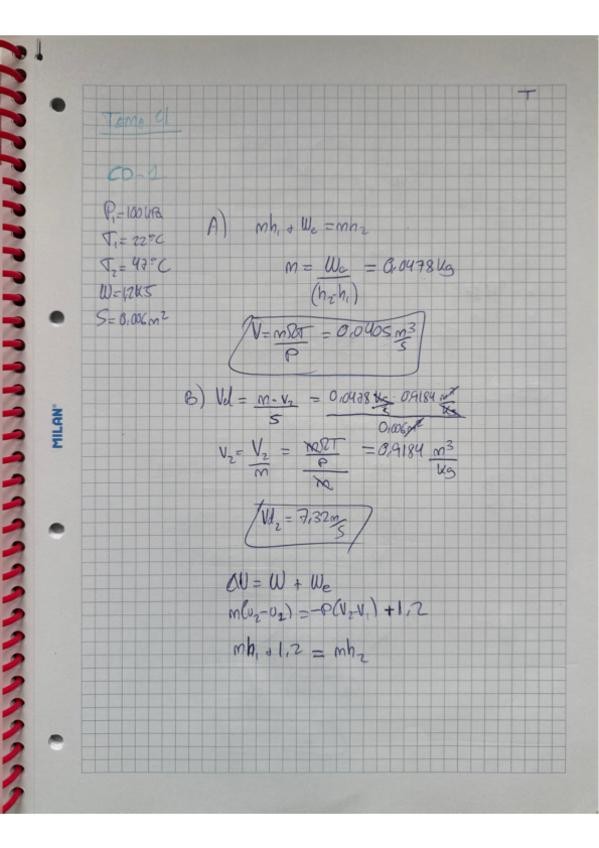 T
Tema 4
CD-1
P₁=100kPa
T₁=22°C
T₂=47°C
W=1,2kJ
S=0,006m²
A) mh₁+We=mh₂
m = We/(h₂-h₁) = 0,0478kg
V = mRT/P = 0,0405 m³/s
B) Vd = m·v₂/S = 0,0478 kg/s · 0,9184 m³/kg / 0,006m²
v₂ = V₂/m = (mRT/P)/m = 0,9184 m³/kg
Vd₂ = 7,32 m/s
ΔU = W + We
m(u₂-u₂) = -P(V₂-V₁) + 1,2
mh₁ + 1,2 = mh₂
MILAN